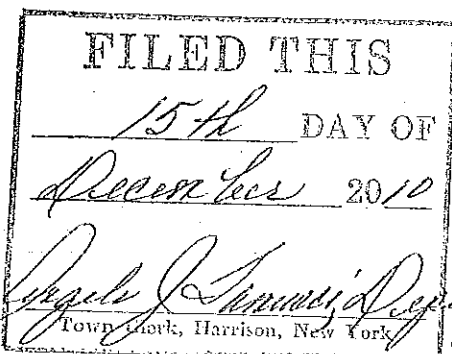 FILED THIS
15th DAY OF
December 2010
Angela J
Town Clerk, Harrison, New York